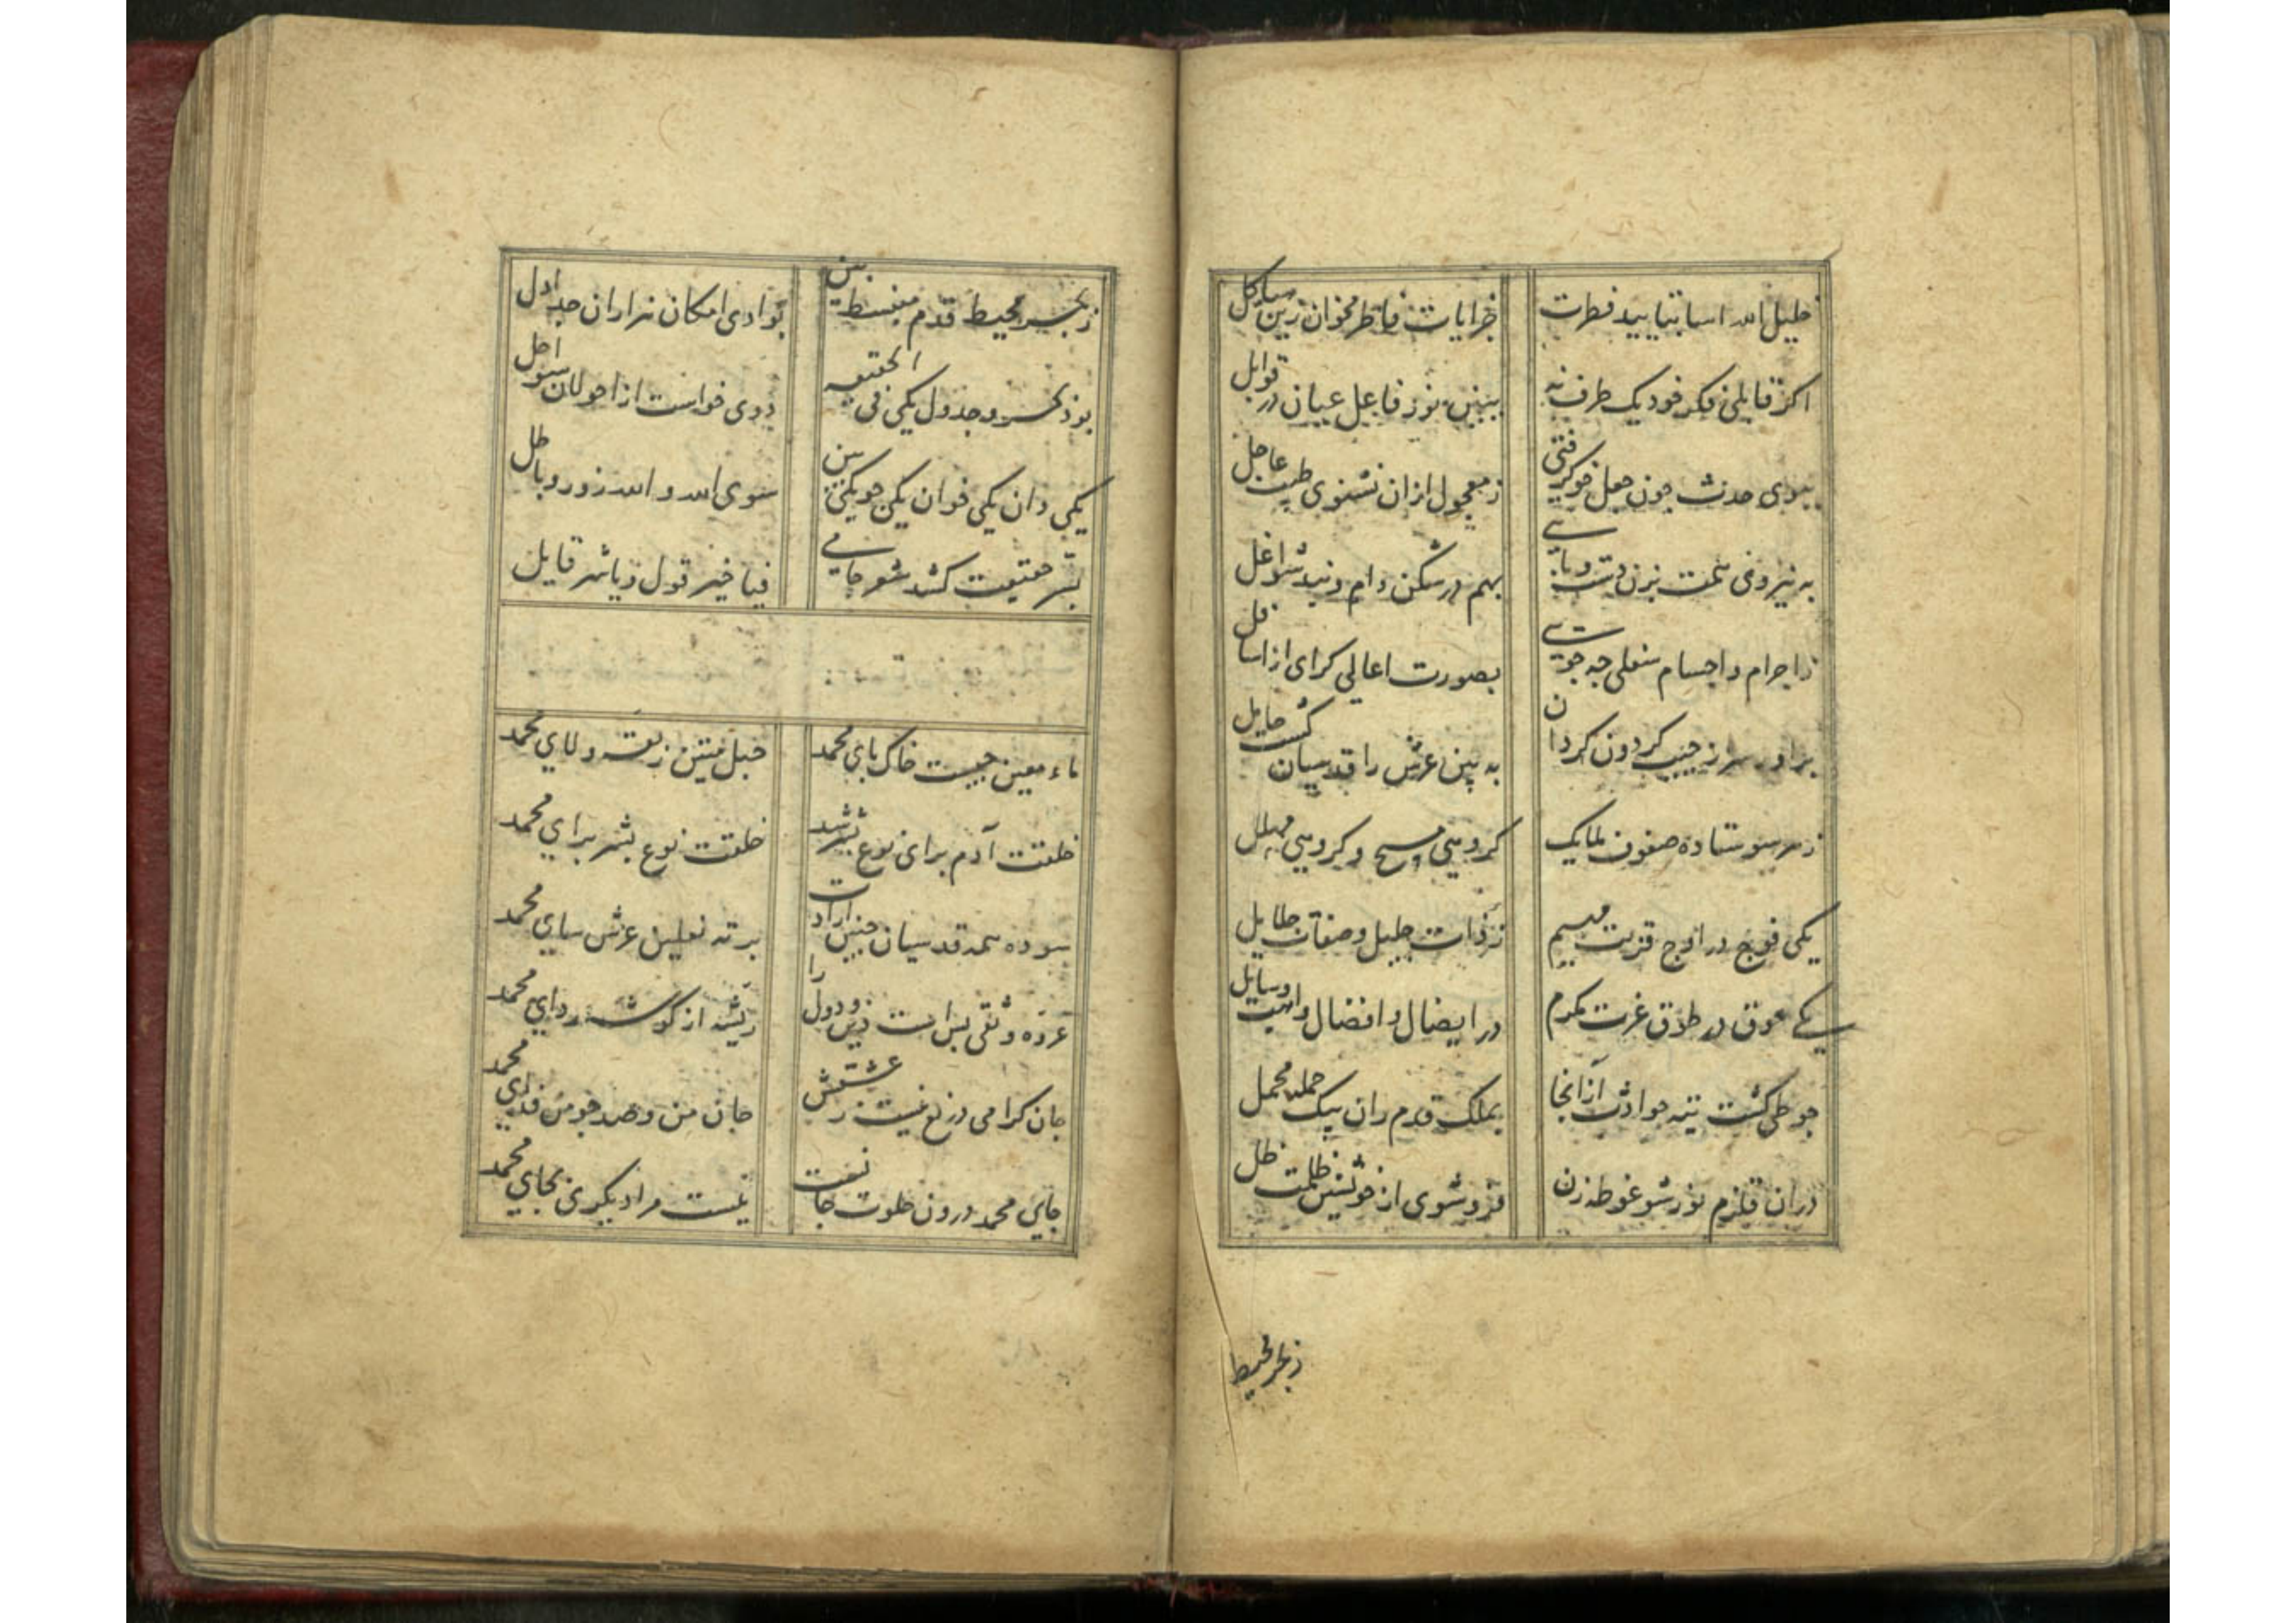 خلیل الله آسا بتایید فطرت
خرایات فاطر مخوان زین هیاکل
اکر قابلی فکر خود یک طرف نه
ببین نور فاعل عیان در قوابل
ببوی حدث چون جعل خو کرفتی
ز مجعول ازان نشنوی طیب جاعل
به نیروی همت بزن دست و پایی
بهم در شکن دام و بند شواغل
ز اجرام و اجسام سفلی چه جویی
بصورت اعالی کرای از اسافل
برآور سر از جیب کردون کردان
به بین عرش را قدسیان کشته حامل
ز هر سو ستاده صفوف ملایک
کروهی مسبح و کروهی مهلل
یکی فوج در اوج قربت مهیم
ز ذات جلیل و صفات جلایل
یکی جوق در طاق عزت مکرم
در ایصال و افضال واهب وسایل
چو طی کشت تیه حوادث از آنجا
بملک قدم ران بیک حمله محمل
در آن قلزم نور شو غوطه زن
فرو شوی از خویشتن ظلمت ظل
ز بحر محیط
ز بحر محیط قدم منبسط بین
بوادی امکان هزاران جداول
بود بحر و جدول یکی فی الحقیقه
دوی خواست از احولان سؤل احول
یکی دان یکی خوان یکی جو یکی بین
سوی الله و الله زور و باطل
بسر حقیقت کشد شعر جامی
فیا خیر قول و یا شر قایل
ماء معین چیست خاک پای محمد
حبل متین ربقه ولای محمد
خلقت آدم برای نوع بشر شد
خلقت نوع بشر برای محمد
سوده همه قدسیان جبین ارادت
بر ته نعلین عرش سای محمد
عروه وثقی بس است دین و دول را
ریشه از کوشه ردای محمد
جان کرامی دریغ نیست ز عشقش
جان من و صد چو من فدای محمد
جای محمد درون خلوت جانست
نیست مرا دیکری بجای محمد